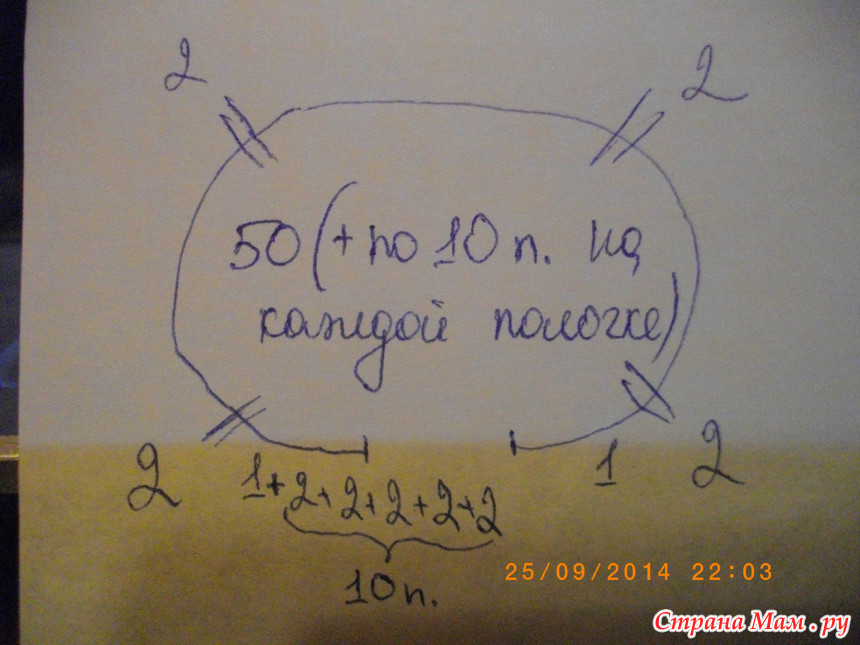 2 2
50 (+ по 10 п. на
каждой полочке)
2 1+2+2+2+2+2 1 2
10 п.
25/09/2014 22:03
Страна Мам.ру